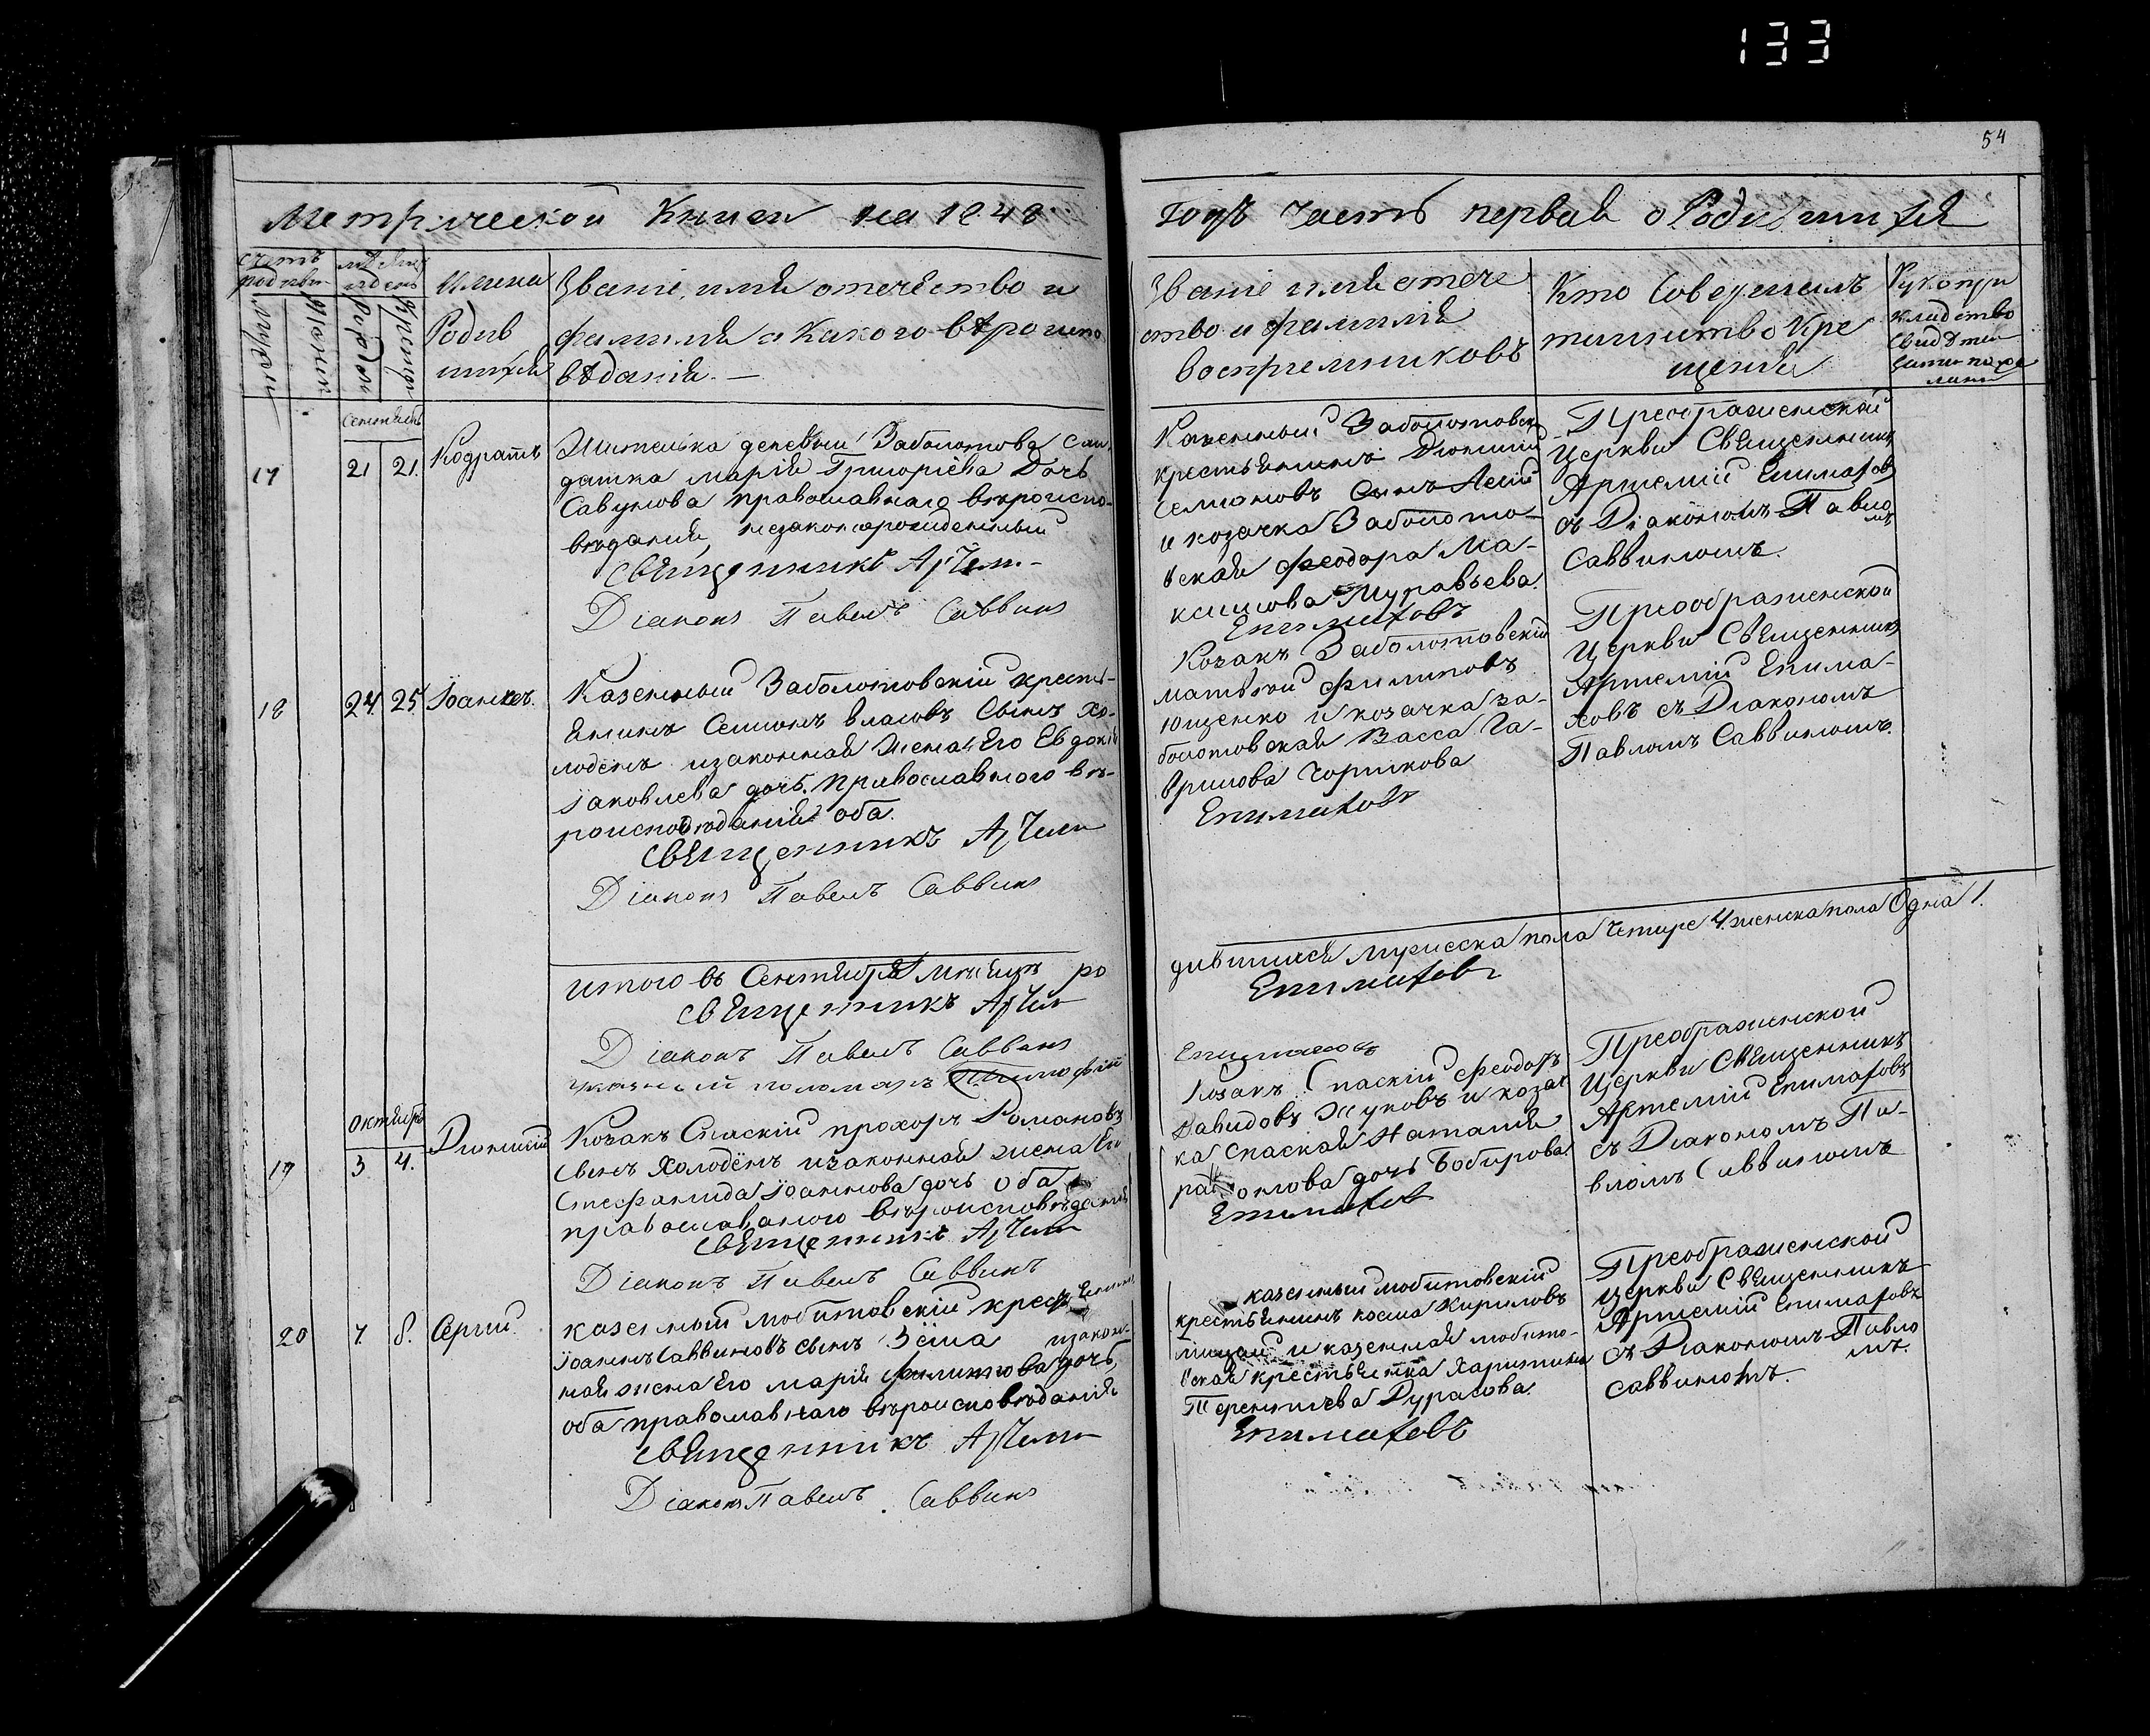 133
54
Метрической Книги на 1848
годъ часть первая о Родившихся
счетъ родивш
мѣсяцъ и день
Имена
Родив
шихся
Званіе, имя отечество и
фамилія и Какого вѣроиспо
вѣданія. —
Званіе имя отече
ство и фамилія
воспріемниковъ
Кто Совершалъ
таинство Кре
щенія
Рукопри
кладство
Свидѣтел
Сентябрь
17
21
21.
Кодратъ
Жителька деревни Заболотова сол
датка Марія Григоріева Дочь
Савунова православнаго вѣроиспо-
вѣданія, незаконорожденный
Священникъ Артем-
Діаконъ Павелъ Саввинъ
Казенный Заболотовск
крестьянинъ Діонисій
Семіоновъ Сынъ
и козачка Заболото-
вская Феодора Ма-
ксимова Муравьева.
Епимаховъ
Преображенской
Церкви Священникъ
Артемій Епимаховъ
съ Діакономъ Павло
мъ
Саввиномъ.
18
24.
25
Іоаннъ.
Казенный Заболотовскій крестъ-
янинъ Симіонъ Власовъ Сынъ Хо-
лоденъ и законная Жена Его Евдокія
Іаковлева дочь. Православного вѣ-
роисповѣданія оба.
Священникъ Артем
Діаконъ Павелъ Саввинъ
Козакъ Заболотовскій
матвѣй Филиповъ
Ющенко и козачка за-
болотовская Васса Га-
врилова Горшкова
Епимаховъ
Преображенской
Церкви Священникъ
Артемій Епима-
ховъ съ Діакономъ
Павломъ Саввиномъ.
итого въ Сентябрѣ мѣсяцѣ ро
дившихся Мужеска пола Четыре 4. женска пола Одна 1.
Священникъ Артем
Епимаховъ
Діаконъ Павелъ Саввинъ
указный поломарь Тимофій
Епимаховъ
Октябрь
19
3
4.
Діонисій
Козакъ Спаскій прохоръ Романовъ
Сынъ Холодёнъ и законная жена Его
Стефанида Іоаннова дочь оба
православного вѣроисповѣданія
Священникъ Артем
Діаконъ Павелъ Саввинъ
Козакъ Спаскій Феодоръ
Давидовъ Жуковъ и козач
ка Спаская Наталія
дочь Бобирова
Епимахов
Преображенской
Церкви Священникъ
Артемій Епимаховъ
съ Діакономъ Па-
вломъ Саввиномъ
20
7.
8.
Сергій.
казенный любитовскій крестьянинъ
Іоаннъ Саввиновъ сынъ Зёма и закон-
ная жена Его марія Филипова дочь,
оба православнаго вѣроисповѣданія
Священникъ Артем
Діаконъ Павелъ Саввинъ
казенный любитовскій
крестьянинъ косма Кириловъ
и казенная любито-
вская крестьянка Харитина
Терентиева Дурасова.
Епимаховъ
Преображенской
Церкви Священникъ
Артемій Епимаховъ
съ Діакономъ Павло
мъ.
саввиномъ.